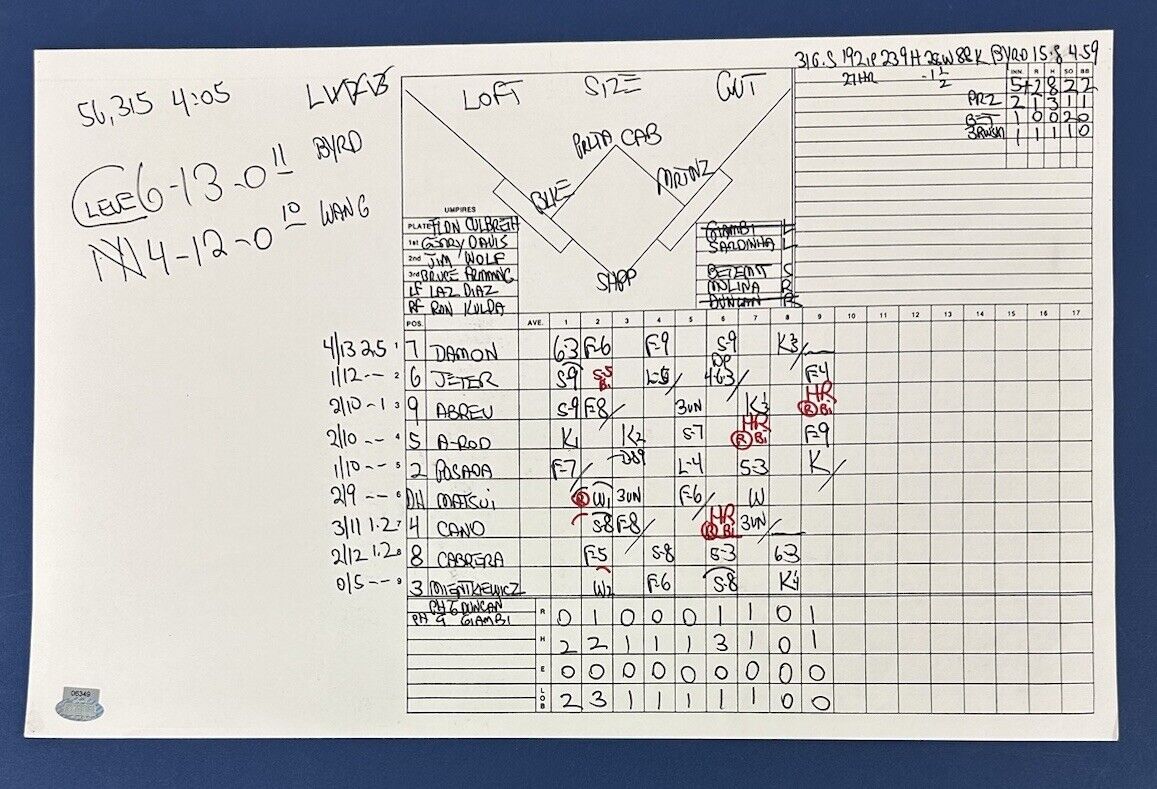 31G.S 192IP 239H 28W 88K BYRD 15-8 4-59
27HR -1 1/2
INN. R H SO BB
5+ 2 8 2 2
PRZ 2 1 3 1 1
BET 1 0 0 2 0
BRWSKI 1 1 1 1 0
56,315 4:05
LOFT SIZE GUT
CLEVE 6-13-0 11 BYRD
NY 4-12-0 10 WANG
PRLTA CAB
BLKE MRTNZ
SHPP
UMPIRES
PLATE FLDN CULBRETH
1st GERRY DAVIS
2nd JIM WOLF
3rd BRUCE FRMMNG
LF LAZ DIAZ
RF RON KULPA
GIAMBI L
SARDINHA L
BETEMT S
MOLINA R
DUNCAN R
POS. AVE. 1 2 3 4 5 6 7 8 9 10 11 12 13 14 15 16 17
4/13 2.5 1 7 DAMON 63 F-6 F-9 S-9 K3
1/12 -- 2 6 JETER S-9 S-5 Bi L-5 DP 4-6-3 F-4
2/10 -1 3 9 ABREU S-9 F-8 3UN K3 HR R Bi
2/10 -- 4 5 A-ROD K1 K2 S-7 HR R Bi F-9
1/10 -- 5 2 POSADA F-7 D89 L-4 5-3 K
2/9 -- 6 DH MATSUI R W1 3UN F-6 W
3/11 1.2 7 4 CANO S-8 F-8 HR R Bi 3UN
2/12 1.2 8 8 CABRERA F-5 S-8 5-3 6-3
0/5 -- 9 3 MIENTKIEWICZ W2 F-6 S-8 K4
PH 6 DUNCAN
PH 9 GIAMBI
R 0 1 0 0 0 1 1 0 1
H 2 2 1 1 1 3 1 0 1
E 0 0 0 0 0 0 0 0 0
LOB 2 3 1 1 1 1 1 0 0
06349